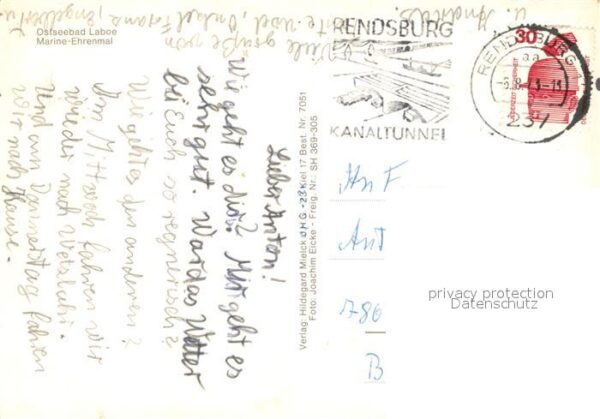 Ostseebad Laboe
Marine-Ehrenmal
Lieber Anton!
Wie geht es dir? Mir geht es
sehr gut. War das Wetter
bei Euch so regnerisch?
Wie geht es den anderen?
Am Mittwoch fahren wir
wieder nach
Und am Donnerstag fahren
wir nach Hause.
Viele Grüße von
u.
Verlag: Hildegard Mielck OHG - 23 Kiel 17 Best. Nr. 7051
Foto: Joachim Eicke - Freig. Nr.: SH 369-305
RENDSBURG
KANALTUNNEL
RENDSBURG 1
aa
237
30
JEDERZEIT SICHERHEIT
An F
Ant
786
B
privacy protection
Datenschutz